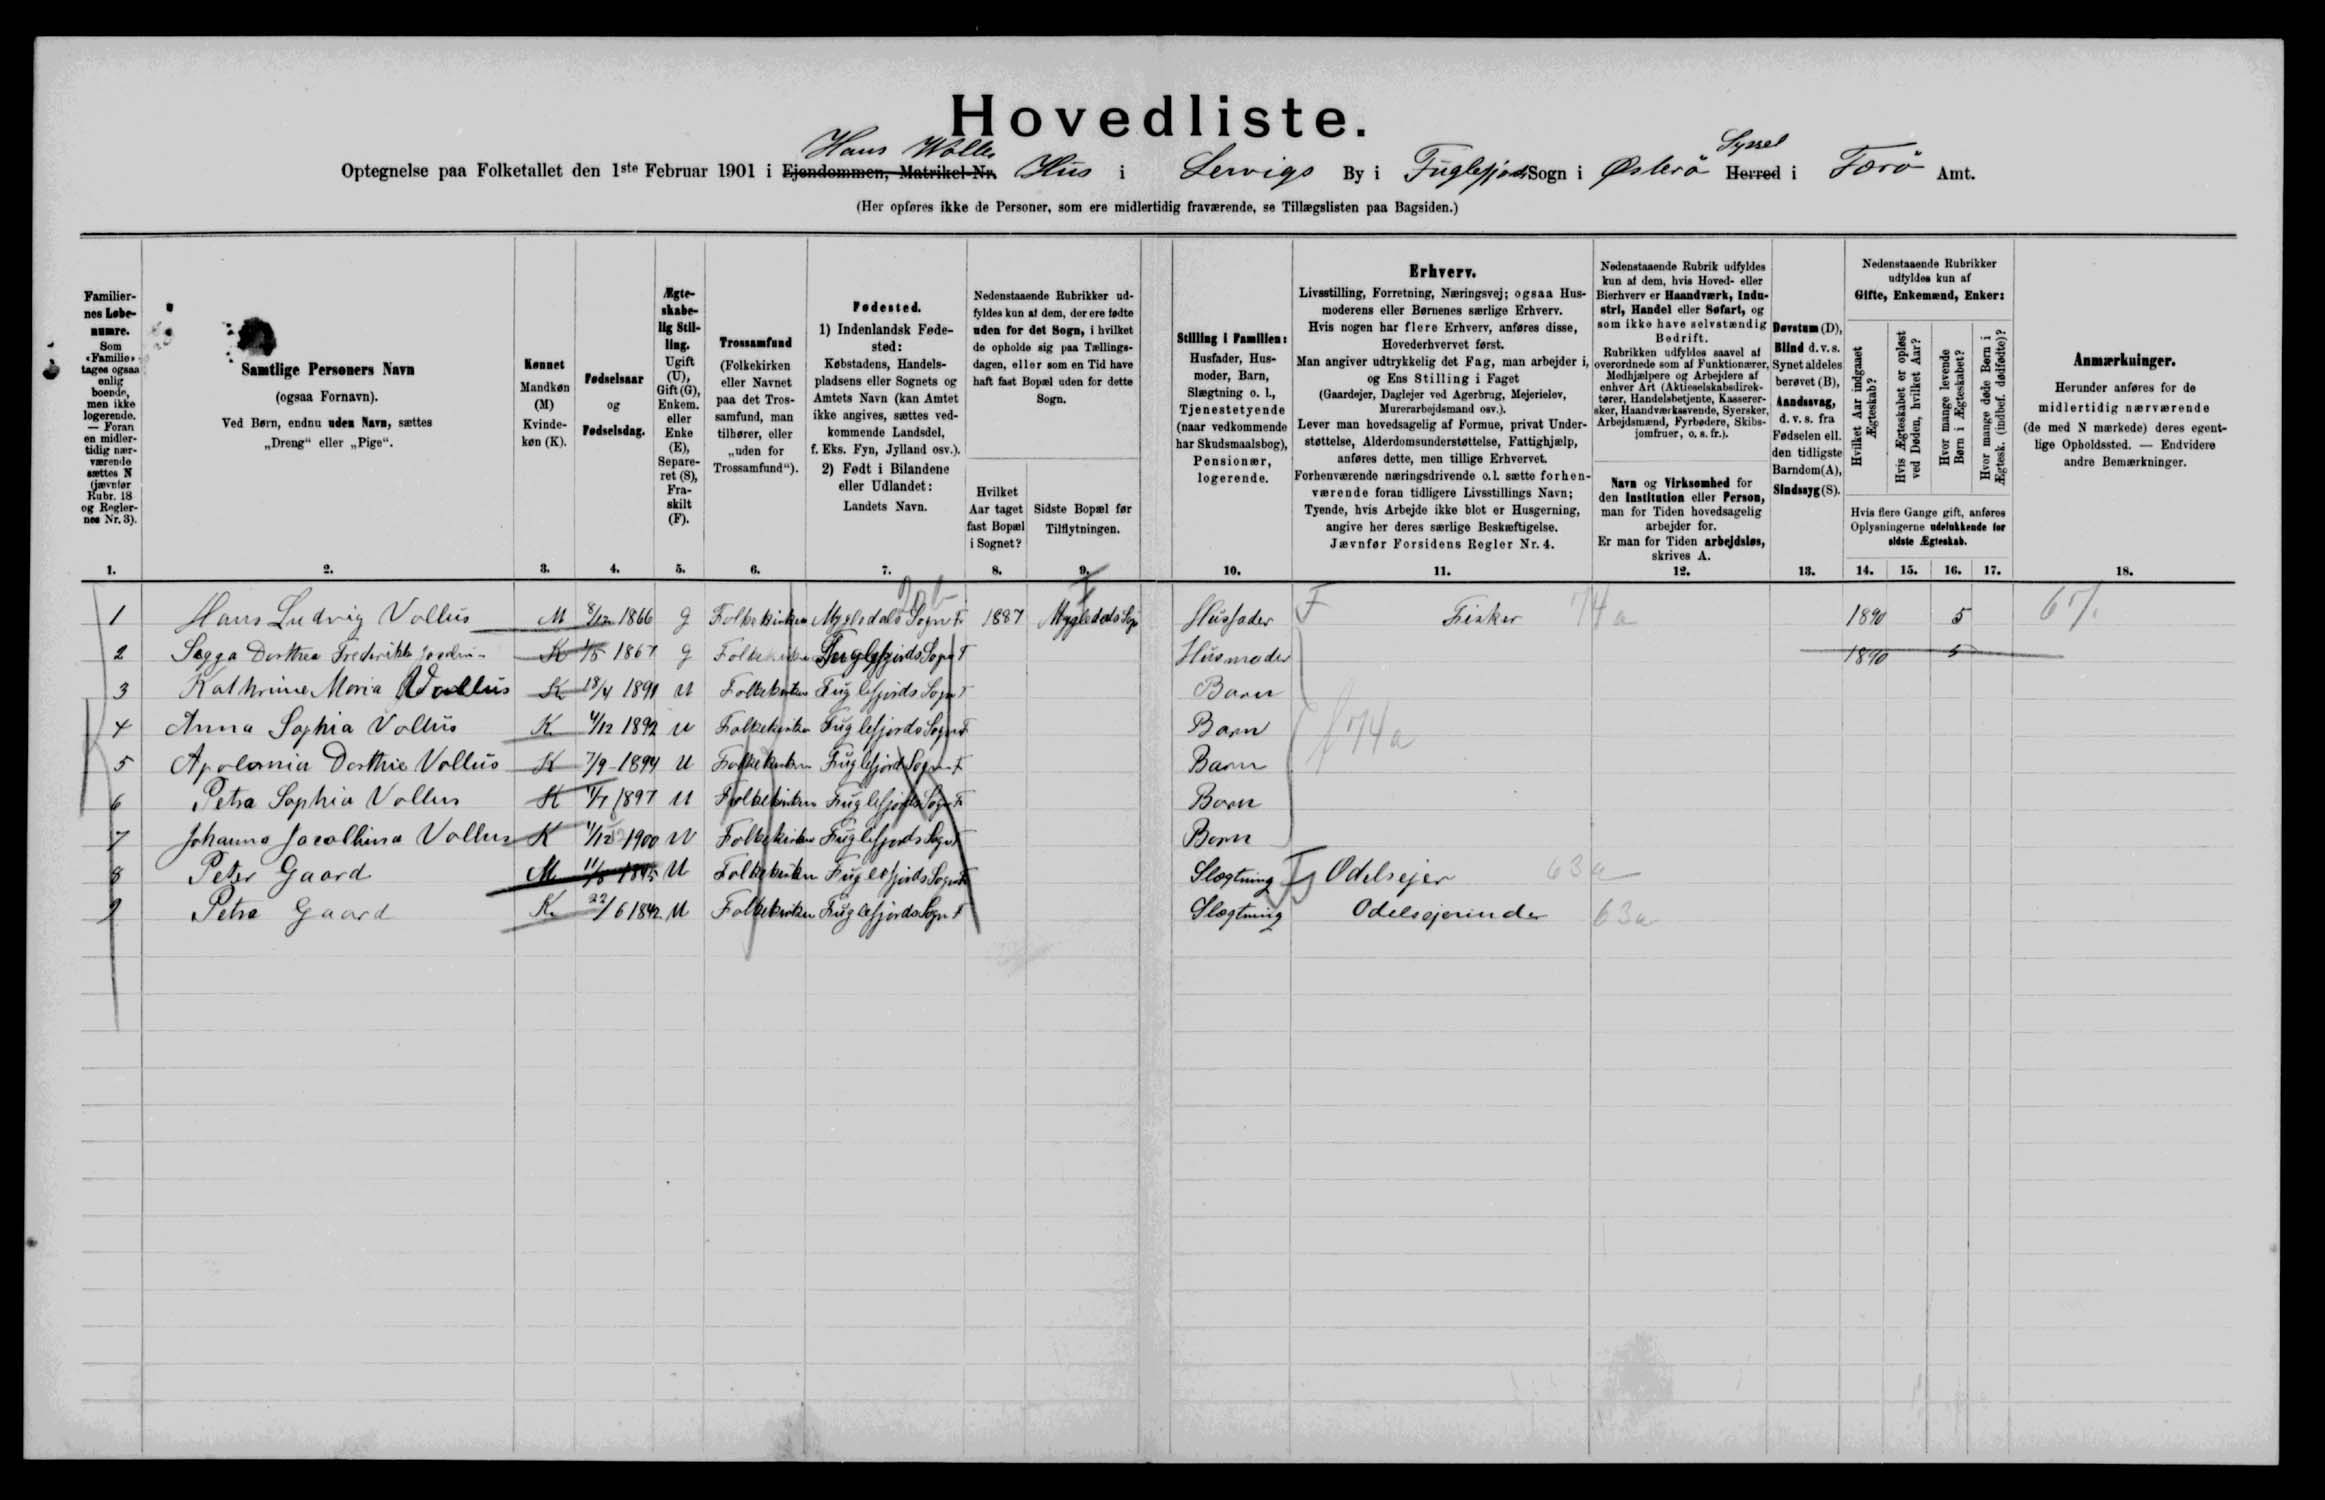 Hovedliste.
Hans Wolles Syssel
Optegnelse paa Folketallet den 1ste Februar 1901 i Ejendommen, Matrikel-Nr. Hus i Lervigs By i Fuglefjords Sogn i Østerö Herred i Færö Amt.
(Her opføres ikke de Personer, som ere midlertidig fraværende, se Tillægslisten paa Bagsiden.)
Familier-
nes Løbe-
numre.
Som
«Familie»
tages ogsaa
enlig
boende,
men ikke
logerende.
— Foran
en midler-
tidig nær-
værende
sættes N
(jævnfør
Rubr. 18
og Regler-
nes Nr. 3).
Samtlige Personers Navn
(ogsaa Fornavn).
Ved Børn, endnu uden Navn, sættes
„Dreng“ eller „Pige“.
Kønnet
Mandkøn
(M)
Kvinde-
køn (K).
Fødselsaar
og
Fødselsdag.
Ægte-
skabe-
lig Stil-
ling.
Ugift
(U),
Gift (G),
Enkem.
eller
Enke
(E),
Separe-
ret (S),
Fra-
skilt
(F).
Trossamfund
(Folkekirken
eller Navnet
paa det Tros-
samfund, man
tilhører, eller
„uden for
Trossamfund“).
Fødested.
1) Indenlandsk Føde-
sted:
Købstadens, Handels-
pladsens eller Sognets og
Amtets Navn (kan Amtet
ikke angives, sættes ved-
kommende Landsdel,
f. Eks. Fyn, Jylland osv.).
2) Født i Bilandene
eller Udlandet:
Landets Navn.
Nedenstaaende Rubrikker ud-
fyldes kun af dem, der ere fødte
uden for det Sogn, i hvilket
de opholde sig paa Tællings-
dagen, eller som en Tid have
haft fast Bopæl uden for dette
Sogn.
Hvilket
Aar taget
fast Bopæl
i Sognet?
Sidste Bopæl før
Tilflytningen.
Stilling i Familien:
Husfader, Hus-
moder, Barn,
Slægtning o. l.,
Tjenestetyende
(naar vedkommende
har Skudsmaalsbog),
Pensionær,
logerende.
Erhverv.
Livsstilling, Forretning, Næringsvej; ogsaa Hus-
moderens eller Børnenes særlige Erhverv.
Hvis nogen har flere Erhverv, anføres disse,
Hovederhvervet først.
Man angiver udtrykkelig det Fag, man arbejder i,
og Ens Stilling i Faget
(Gaardejer, Daglejer ved Agerbrug, Mejerielev,
Murerarbejdsmand osv.).
Lever man hovedsagelig af Formue, privat Under-
støttelse, Alderdomsunderstøttelse, Fattighjælp,
anføres dette, men tillige Erhvervet.
Forhenværende næringsdrivende o. l. sætte forhen-
værende foran tidligere Livsstillings Navn;
Tyende, hvis Arbejde ikke blot er Husgerning,
angive her deres særlige Beskæftigelse.
Jævnfør Forsidens Regler Nr. 4.
Nedenstaaende Rubrik udfyldes
kun af dem, hvis Hoved- eller
Bierhverv er Haandværk, Indu-
stri, Handel eller Søfart, og
som ikke have selvstændig
Bedrift.
Rubrikken udfyldes saavel af
overordnede som af Funktionærer,
Medhjælpere og Arbejdere af
enhver Art (Aktieselskabsdirek-
tører, Handelsbetjente, Kasserer-
sker, Haandværkssvende, Syersker,
Arbejdsmænd, Fyrbødere, Skibs-
jomfruer, o. s. fr.).
Navn og Virksomhed for
den Institution eller Person,
man for Tiden hovedsagelig
arbejder for.
Er man for Tiden arbejdsløs,
skrives A.
Døvstum (D),
Blind d. v. s.
Synet aldeles
berøvet (B),
Aandssvag,
d. v. s. fra
Fødselen ell.
den tidligste
Barndom (A),
Sindssyg (S).
Nedenstaaende Rubrikker
udfyldes kun af
Gifte, Enkemænd, Enker:
Hvilket Aar indgaaet
Ægteskab?
Hvis Ægteskabet er opløst
ved Døden, hvilket Aar?
Hvor mange levende
Børn i Ægteskabet?
Hvor mange døde Børn i
Ægtesk. (indbef. dødfødte)?
Hvis flere Gange gift, anføres
Oplysningerne udelukkende for
sidste Ægteskab.
Anmærkninger.
Herunder anføres for de
midlertidig nærværende
(de med N mærkede) deres egent-
lige Opholdssted. — Endvidere
andre Bemærkninger.
1. 2. 3. 4. 5. 6. 7. 8. 9. 10. 11. 12. 13. 14. 15. 16. 17. 18.
1 Hans Ludvig Vollus M 8/12 1866 g Folkekirken Mygledals Sogn F 1887 Mygledals Sogn Husfader F Fisker 74a 1890 5
2 Segga Dorthea Frederikke K 1/5 1867 g Folkekirken Fuglefjords Sogn F Husmoder 1890 5
3 Kathrine Maria Wollus K 18/4 1891 U Folkekirken Fuglefjords Sogn F Barn
4 Anna Sophia Vollus K 4/12 1892 U Folkekirken Fuglefjords Sogn F Barn f 74a
5 Apolonia Dorthie Vollus K 7/9 1894 U Folkekirken Fuglefjords Sogn F Barn
6 Petra Sophia Vollus K 1/7 1897 U Folkekirken Fuglefjords Sogn F Barn
7 Johanna Jacobina Vollus K 1/12 1900 U Folkekirken Fuglefjords Sogn F Barn
8 Peter Gaard M 11/8 1845 U Folkekirken Fuglefjords Sogn F Slægtning Odelsejer 63a
9 Petra Gaard K 22/6 1842 U Folkekirken Fuglefjords Sogn F Slægtning Odelsejerinde 63a